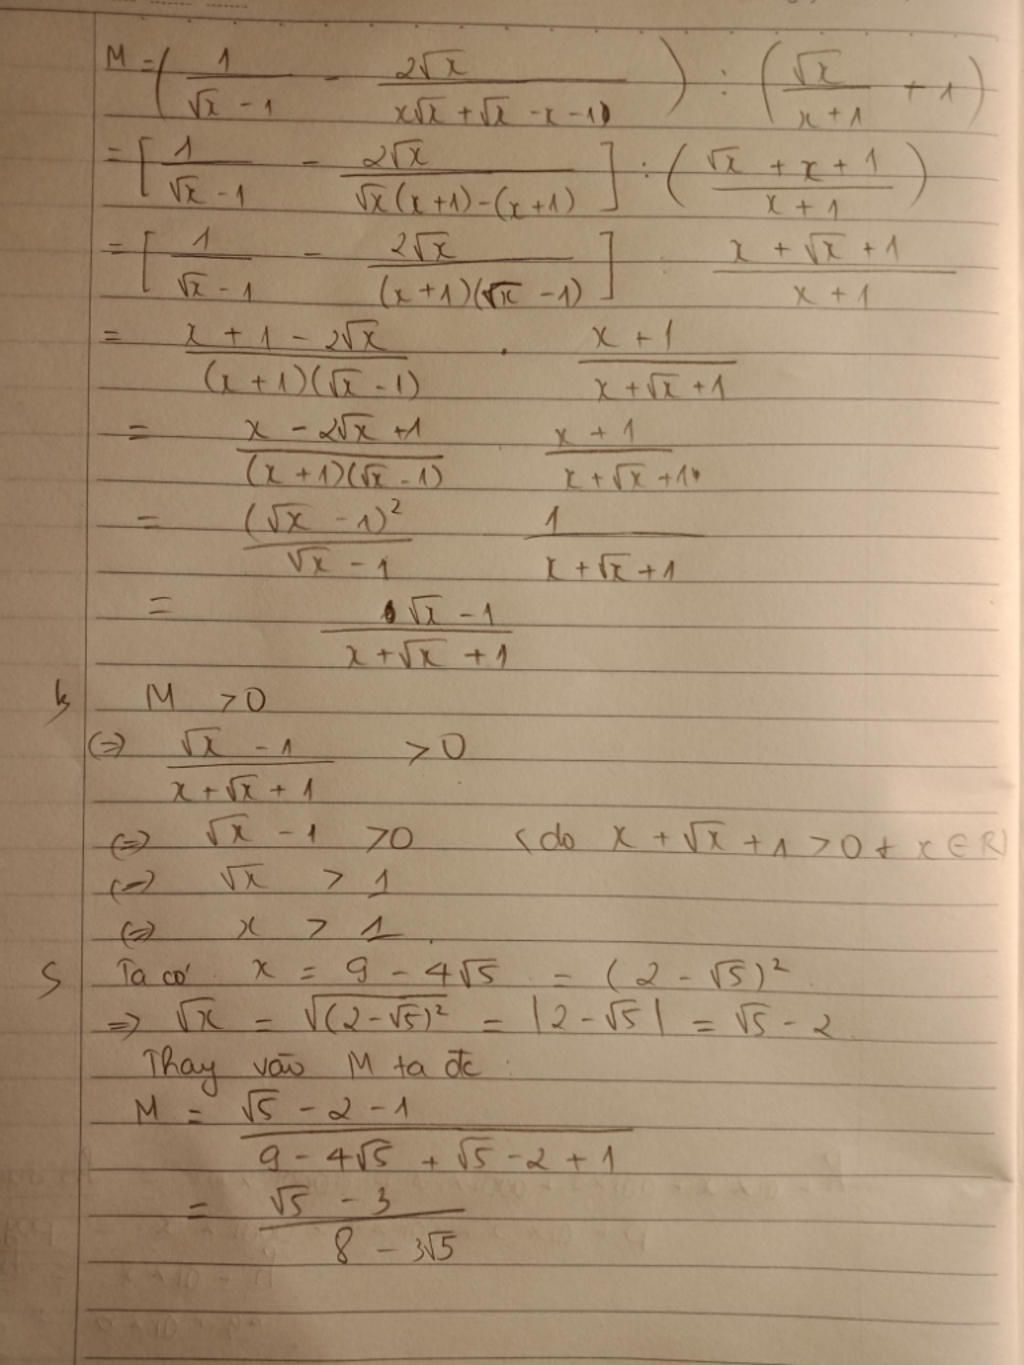 M = ( 1/(√x - 1) - 2√x/(x√x + √x - x - 1) ) : ( √x/(x + 1) + 1 )
= [ 1/(√x - 1) - 2√x/(√x(x+1) - (x+1)) ] : ( (√x + x + 1)/(x + 1) )
= [ 1/(√x - 1) - 2√x/((x+1)(√x - 1)) ] . (x + √x + 1)/(x + 1)
= (x + 1 - 2√x)/((x+1)(√x - 1)) . (x + 1)/(x + √x + 1)
= (x - 2√x + 1)/((x+1)(√x - 1)) (x + 1)/(x + √x + 1)
= (√x - 1)²/(√x - 1) 1/(x + √x + 1)
= (√x - 1)/(x + √x + 1)
b, M > 0
(=) (√x - 1)/(x + √x + 1) > 0
(=) √x - 1 > 0 (do x + √x + 1 > 0 ∀ x ∈ R)
(=) √x > 1
(=) x > 1.
Ta có x = 9 - 4√5 = (2 - √5)²
=> √x = √(2-√5)² = |2 - √5| = √5 - 2
Thay vào M ta đc :
M = (√5 - 2 - 1)/(9 - 4√5 + √5 - 2 + 1)
= (√5 - 3)/(8 - 3√5)